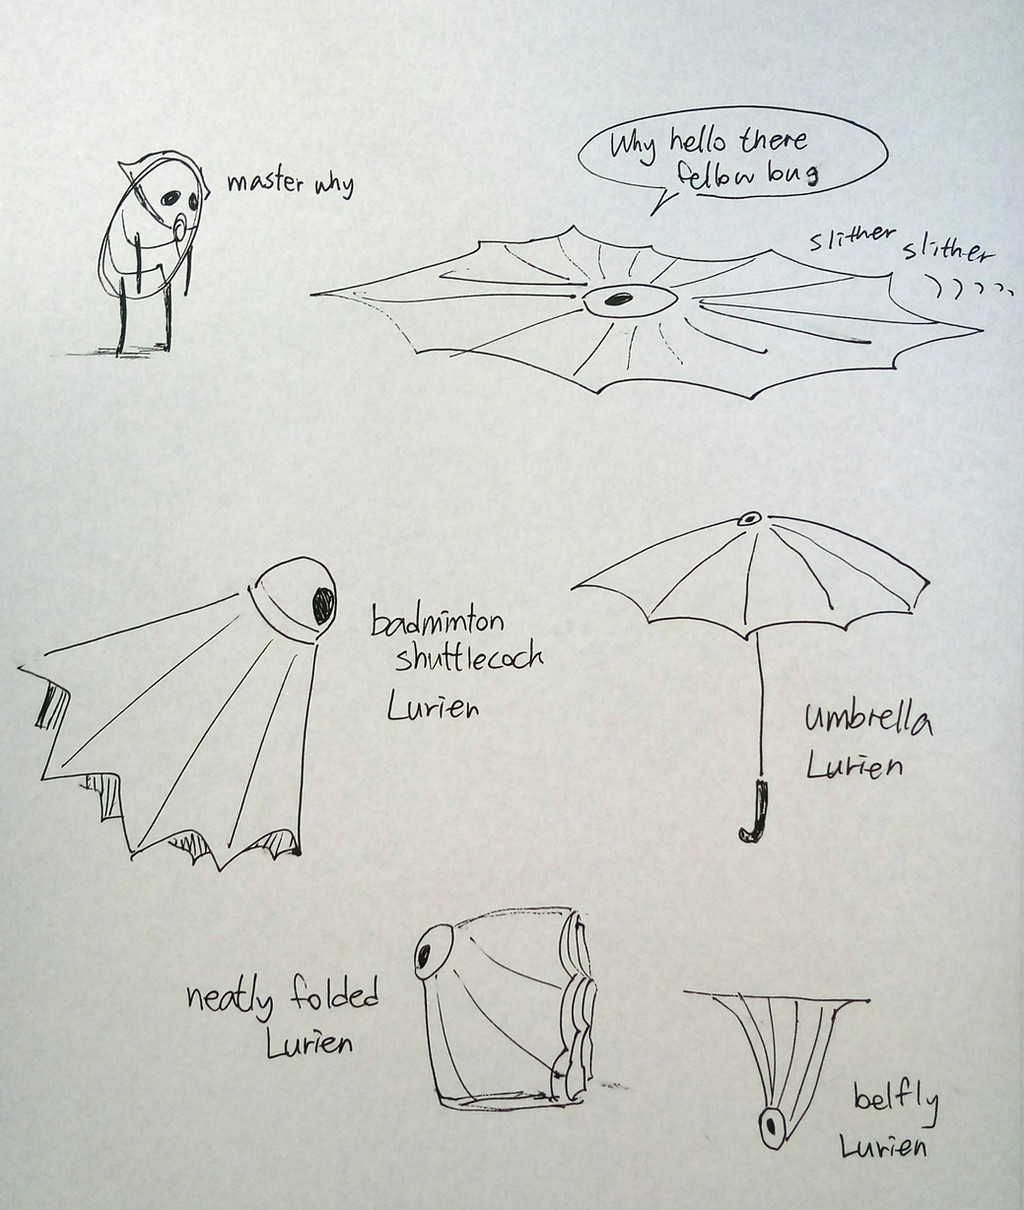 master why
Why hello there
fellow bug
slither slither
badminton
shuttlecock
Lurien
umbrella
Lurien
neatly folded
Lurien
belfly
Lurien